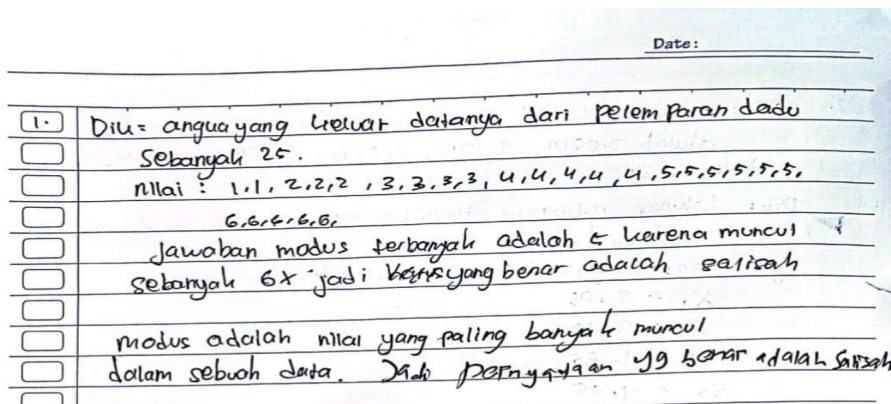 Date:
1. Dik= angka yang keluar datanya dari pelemparan dadu
sebanyak 25.
nilai : 1,1, 2,2,2 ,3,3,3,3, 4,4,4,4,4,5,5,5,5,5,5,
6,6,6,6,6,
jawaban modus terbanyak adalah 5 karena muncul
sebanyak 6x jadi yang benar adalah salisah
modus adalah nilai yang paling banyak muncul
dalam sebuah data. Jadi pernyataan yg benar adalah salisah